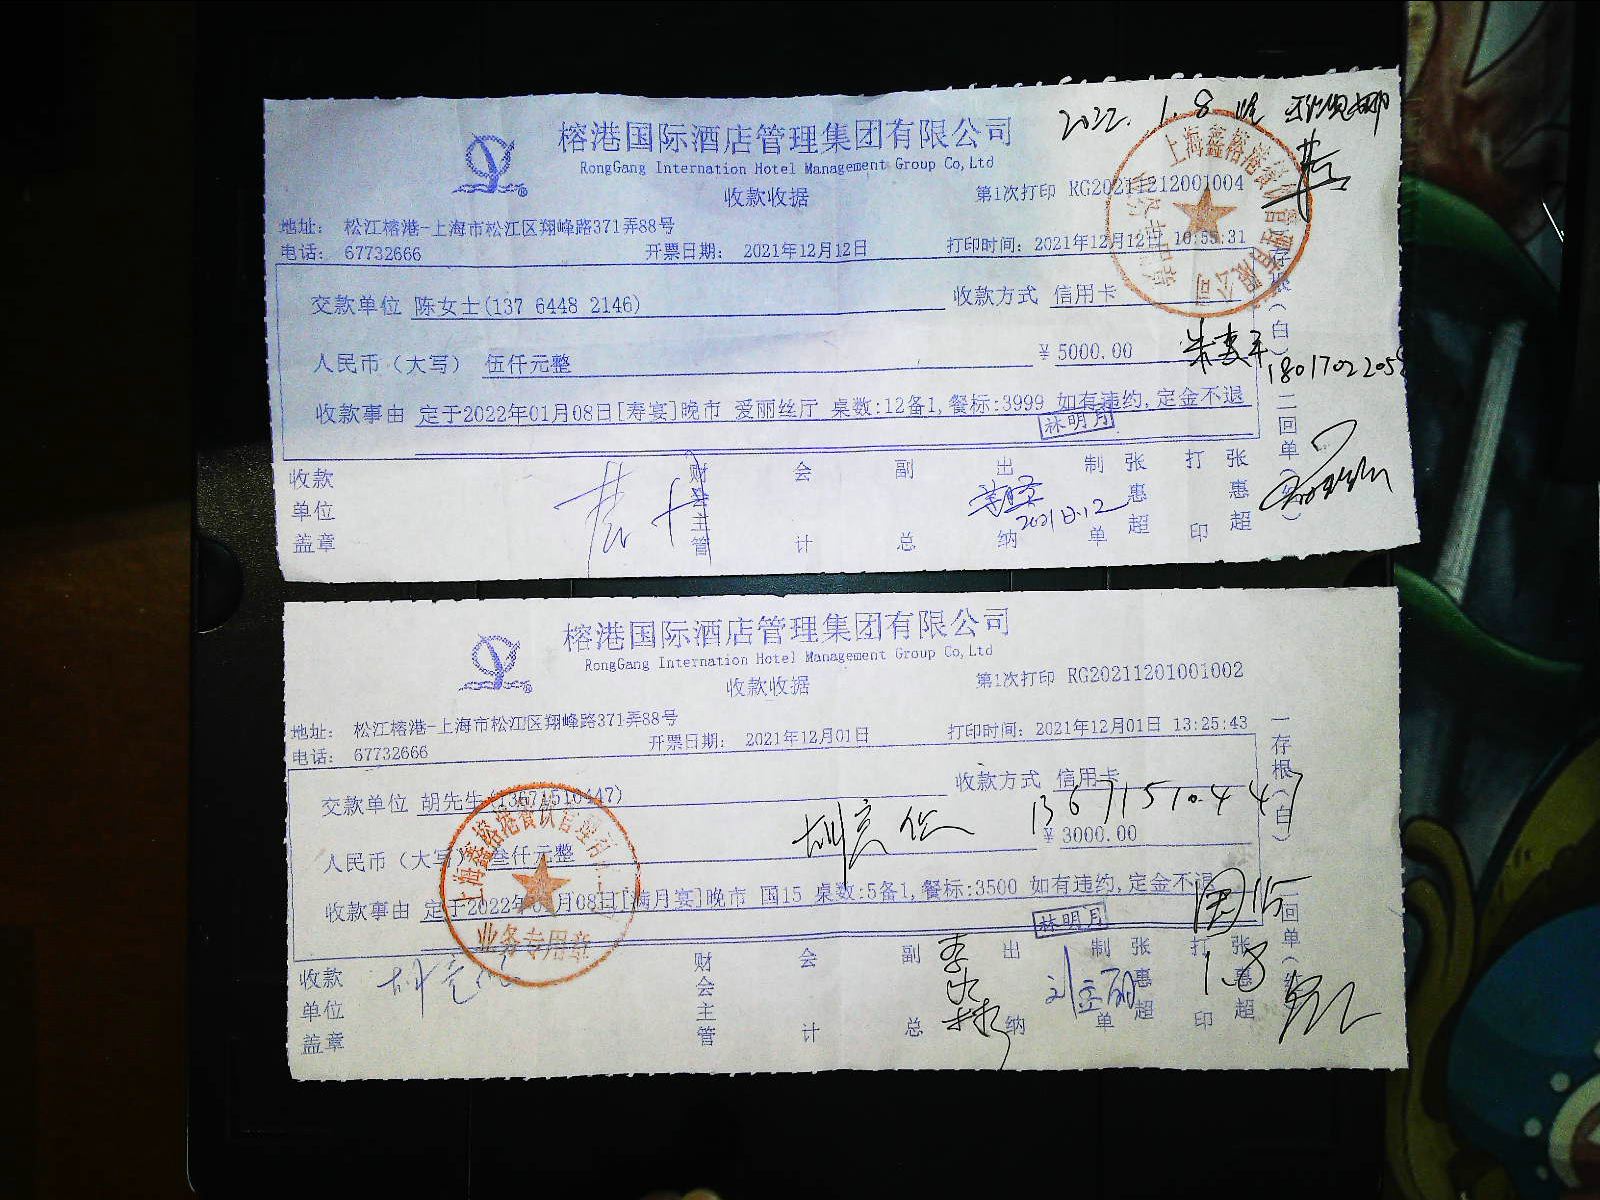 2022. 1. 8
榕港国际酒店管理集团有限公司
RongGang Internation Hotel Management Group Co,Ltd
收款收据
第1次打印 RG20211212001004
地址: 松江榕港-上海市松江区翔峰路371弄88号
电话: 67732666 开票日期: 2021年12月12日 打印时间: 2021年12月12日 10:55:31
交款单位 陈女士(137 6448 2146) 收款方式 信用卡
人民币（大写） 伍仟元整 ￥5000.00
1801702205
收款事由 定于2022年01月08日[寿宴]晚市 爱丽丝厅 桌数:12备1,餐标:3999 如有违约,定金不退
林明月
收款单位盖章 财会主管 会计 副总 出纳 制单 张惠超 打印 张惠超
2021.12.12
二回单
榕港国际酒店管理集团有限公司
RongGang Internation Hotel Management Group Co,Ltd
收款收据
第1次打印 RG20211201001002
地址: 松江榕港-上海市松江区翔峰路371弄88号
电话: 67732666 开票日期: 2021年12月01日 打印时间: 2021年12月01日 13:25:43
交款单位 胡先生(13671510447) 收款方式 信用卡
13671510447
人民币（大写） 叁仟元整 ￥3000.00
收款事由 定于2022年01月08日[满月宴]晚市 国15 桌数:5备1,餐标:3500 如有违约,定金不退
国15
林明月
业务专用章
收款单位盖章 财会主管 会计 副总 出纳 制单 张惠超 打印 张惠超
1.8
一存根（白） 二回单